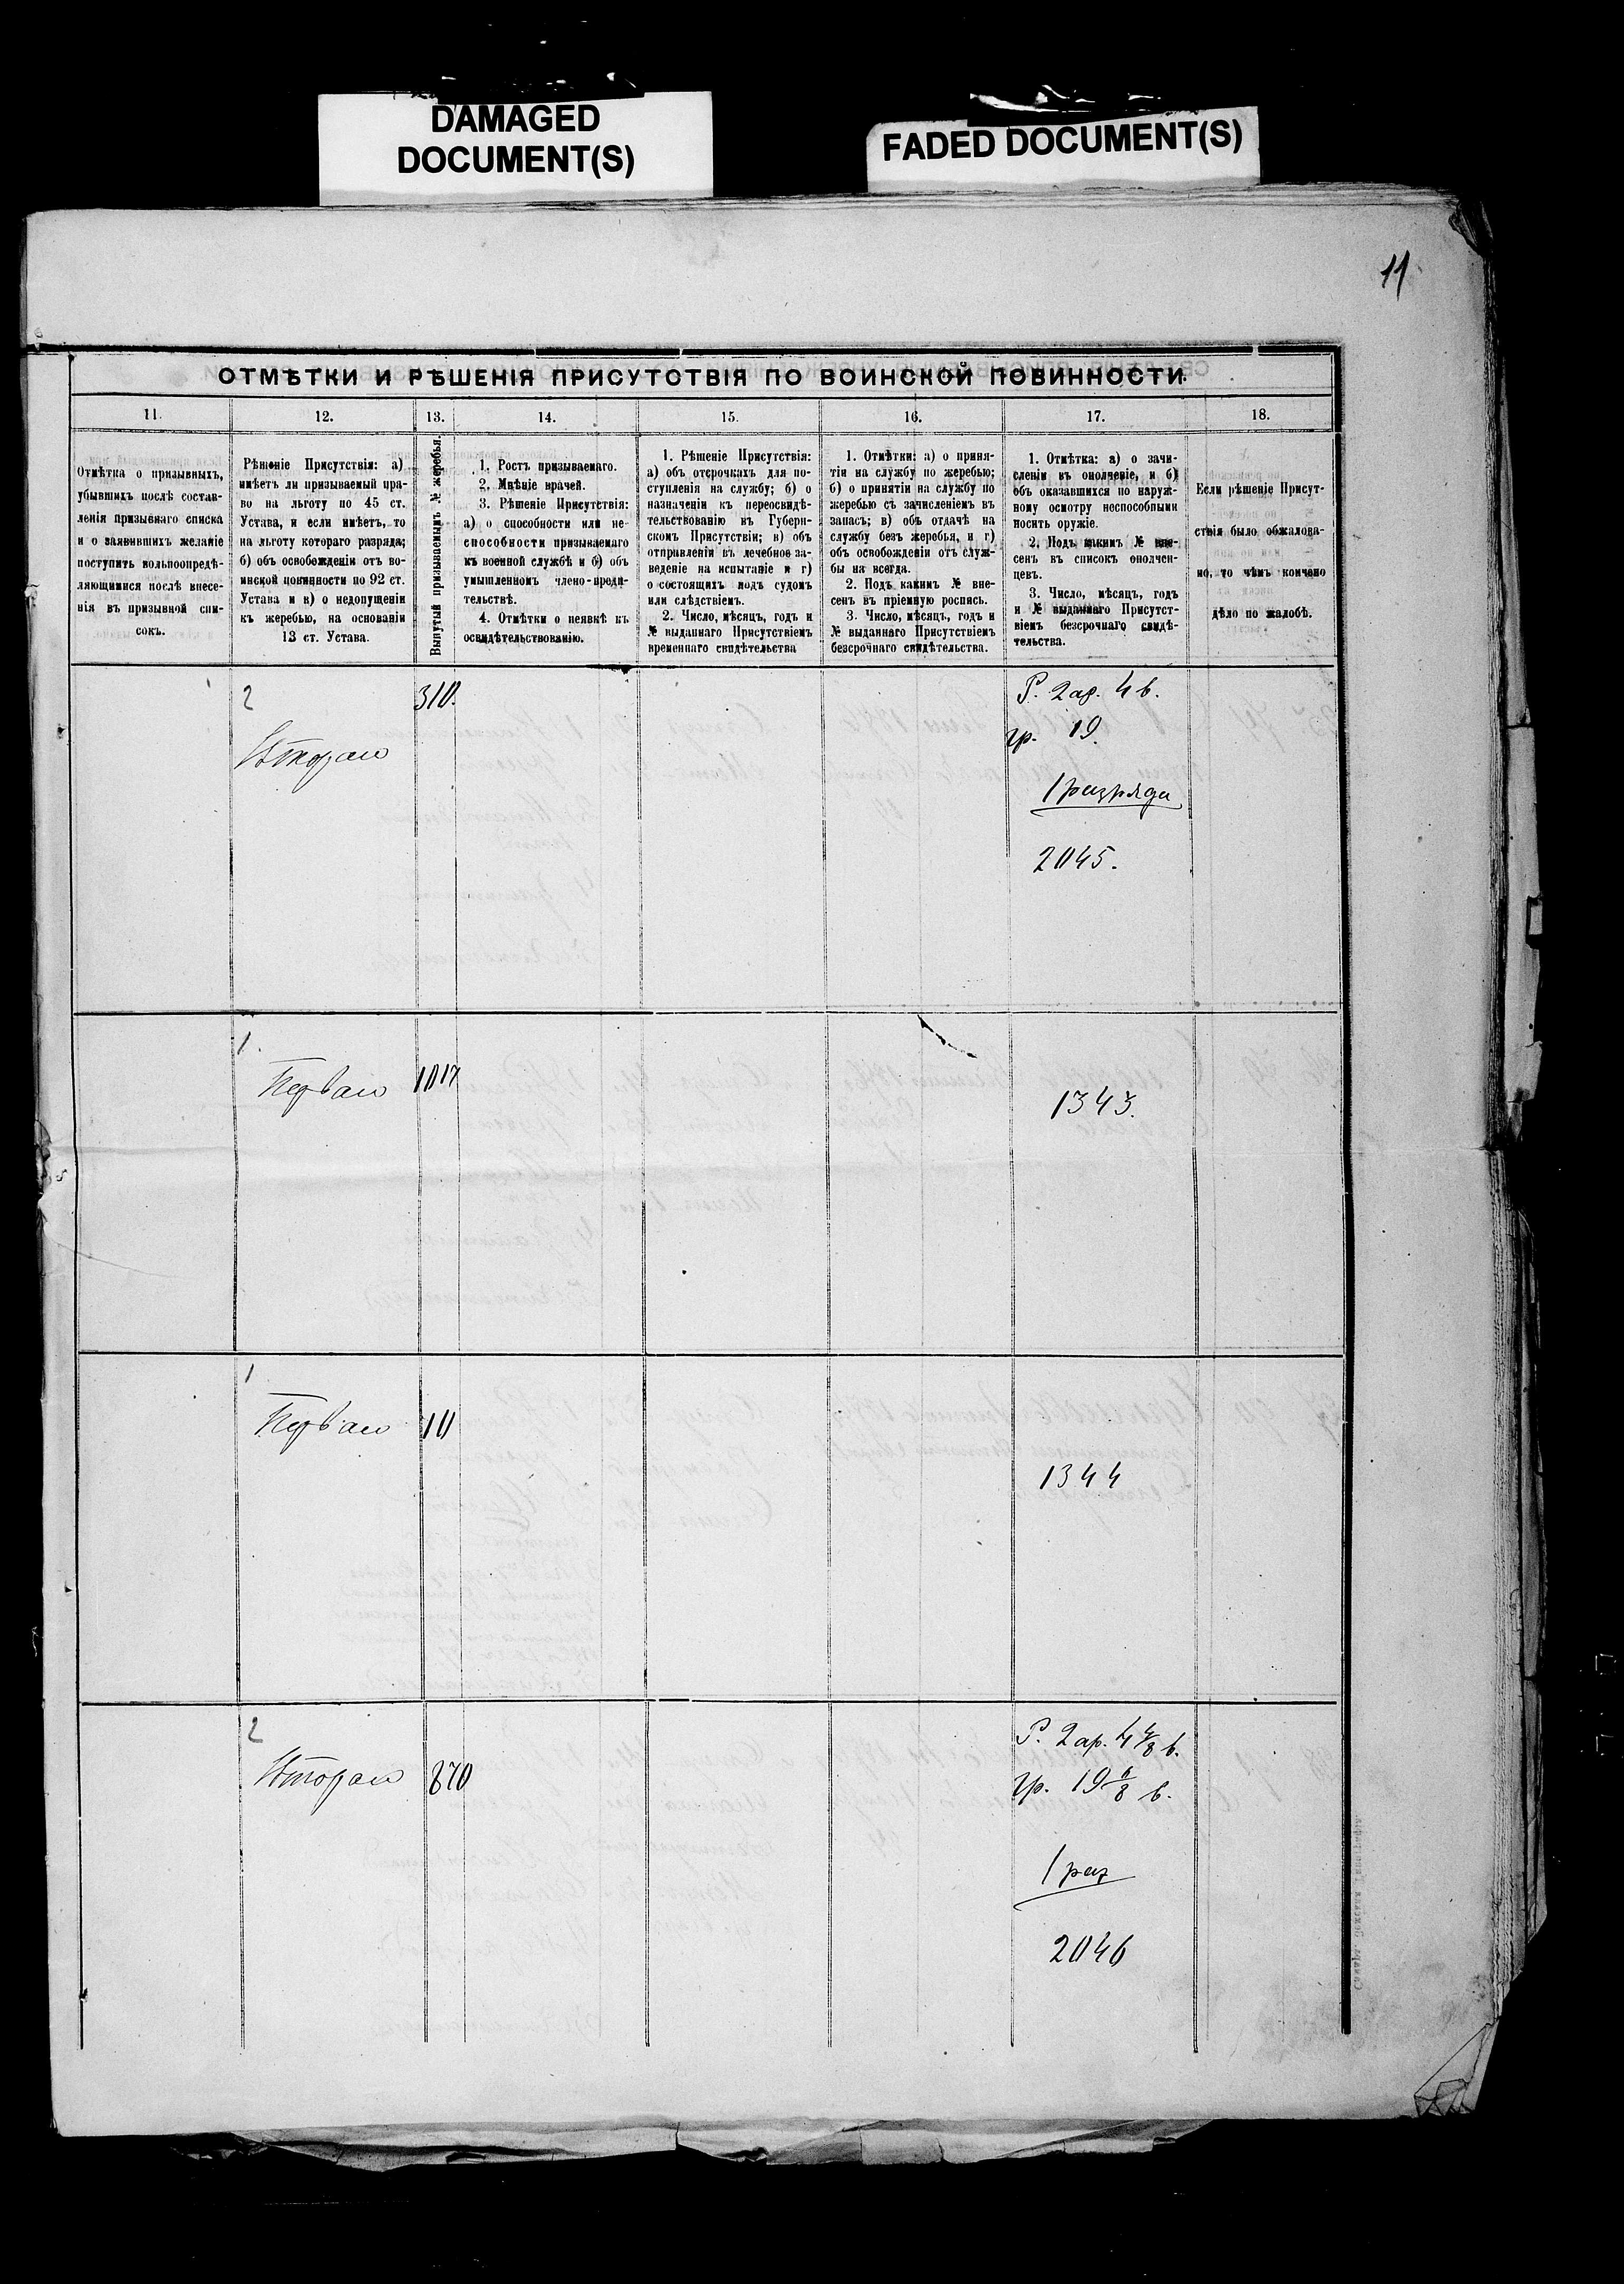 DAMAGED
DOCUMENT(S)
FADED DOCUMENT(S)
11
ОТМѢТКИ И РѢШЕНІЯ ПРИСУТСТВІЯ ПО ВОИНСКОЙ ПОВИННОСТИ.
11.
12.
13.
14.
15.
16.
17.
18.
Отмѣтка о призывныхъ,
убывшихъ послѣ состав-
ленія призывнаго списка
и о заявившихъ желаніе
поступить вольноопредѣ-
ляющимися послѣ внесе-
нія въ призывной спи-
сокъ.
Рѣшеніе Присутствія: а)
имѣетъ ли призываемый пра-
во на льготу по 45 ст.
Устава, и если имѣетъ, то
на льготу котораго разряда;
б) объ освобожденіи отъ во-
инской повинности по 92 ст.
Устава и в) о недопущеніи
къ жеребью, на основаніи
13 ст. Устава.
Вынутый призываемымъ № жеребья.
1. Ростъ призываемаго.
2. Мнѣніе врачей.
3. Рѣшеніе Присутствія:
а) о способности или не-
способности призываемаго
къ военной службѣ и б) объ
умышленномъ члено-вреди-
тельствѣ.
4. Отмѣтки о неявкѣ къ
освидѣтельствованію.
1. Рѣшеніе Присутствія:
а) объ отсрочкахъ для по-
ступленія на службу; б) о
назначеніи къ переосвидѣ-
тельствованію въ Губерн-
скомъ Присутствіи; в) объ
отправленіи въ лечебное за-
веденіе на испытаніе и г)
о состоящихъ подъ судомъ
или слѣдствіемъ.
2. Число, мѣсяцъ, годъ и
№ выданнаго Присутствіемъ
временнаго свидѣтельства
1. Отмѣтки: а) о приня-
тіи на службу по жеребью;
б) о принятіи на службу по
жеребью съ зачисленіемъ въ
запасъ; в) объ отдачѣ на
службу безъ жеребья, и г)
объ освобожденіи отъ служ-
бы на всегда.
2. Подъ какимъ № вне-
сенъ въ пріемную роспись.
3. Число, мѣсяцъ, годъ и
№ выданнаго Присутствіемъ
безсрочнаго свидѣтельства.
1. Отмѣтка: а) о зачи-
сленіи въ ополченіе, и б)
объ оказавшихся по наруж-
ному осмотру неспособными
носить оружіе.
2. Подъ какимъ № вне-
сенъ въ списокъ ополчен-
цевъ.
3. Число, мѣсяцъ, годъ
и № выданнаго Присутст-
віемъ безсрочнаго свидѣ-
тельства.
Если рѣшеніе Присут-
ствія было обжалова-
но, то чѣмъ кончено
дѣло по жалобѣ.
2
Вторая
310.
Р. 2 ар. 4 в.
гр. 19.
1 разряда
2045.
1.
Первая
1017
1343.
1
Первая
10
1344
2
Вторая
870
Р. 2 ар. 4 4/8 в.
гр. 19 6/8 в.
1 раз
2046